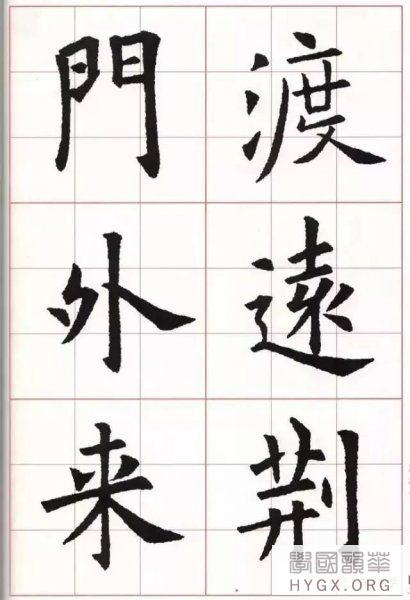 渡遠荆
門外来
華韻國學
HYGX.ORG